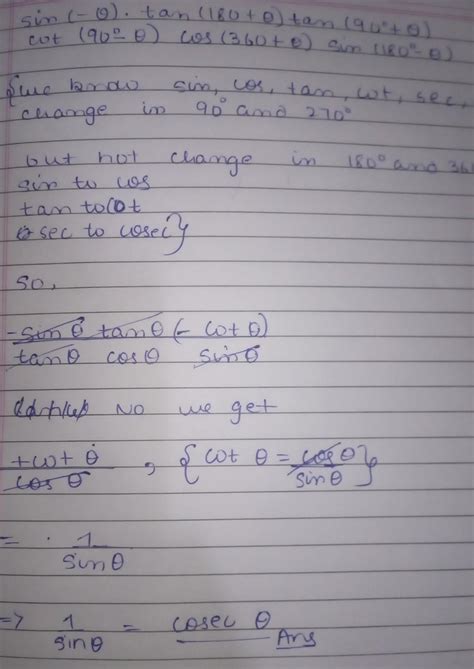 sin(-θ). tan(180+θ) tan(90°+θ)
cot (90°-θ) cos(360+θ) sin(180°-θ)
{we know sin, cos, tan, cot, sec,
change in 90° and 270°
but not change in 180° and 36
sin to cos
tan to cot
sec to cosec}
so,
-sinθ tanθ (-cotθ)
tanθ cosθ sinθ
No we get
+cotθ , {cot θ = cosθ
cosθ sinθ}
= . 1
sinθ
=> 1 = cosec θ
sinθ Ans